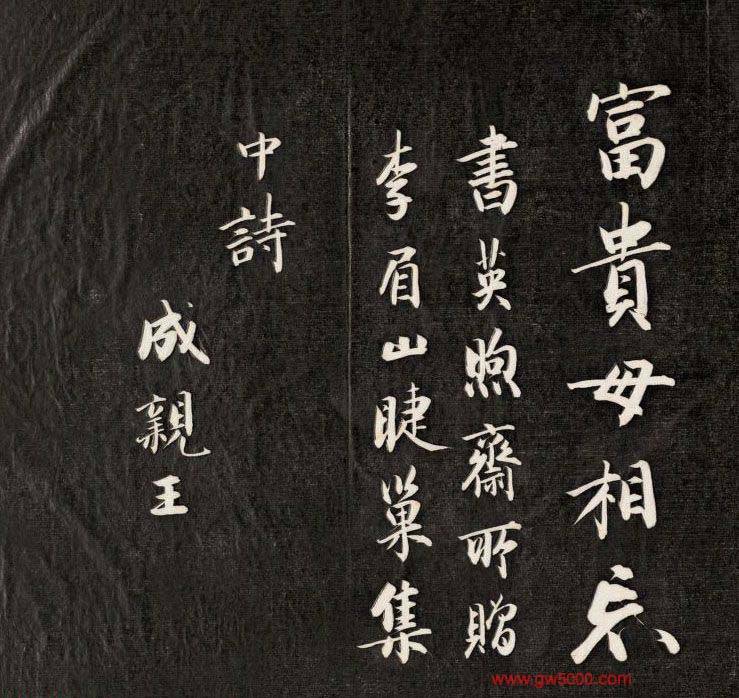 富貴毋相忘
書英煦齋所贈
李眉山睫巢集
中詩
成親王
www.gw5000.com